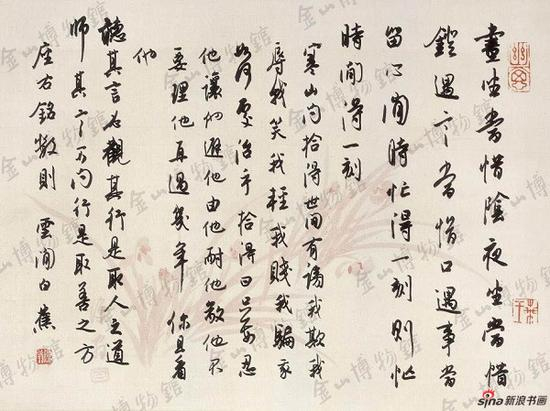 晝坐當惜陰夜坐當惜
鐙遇言當惜口遇事當
留心閒時忙得一刻則忙
時閒得一刻
寒山问拾得世间有謗我欺我
辱我笑我輕我賤我騙我
如何處治乎拾得曰只要忍
他讓他避他由他耐他敬他不
要理他再過幾年你且看
他
聽其言必觀其行是取人之道
師其言不问行是取善之方
座右銘数則 雲间白蕉
金山博物館
sina新浪书画